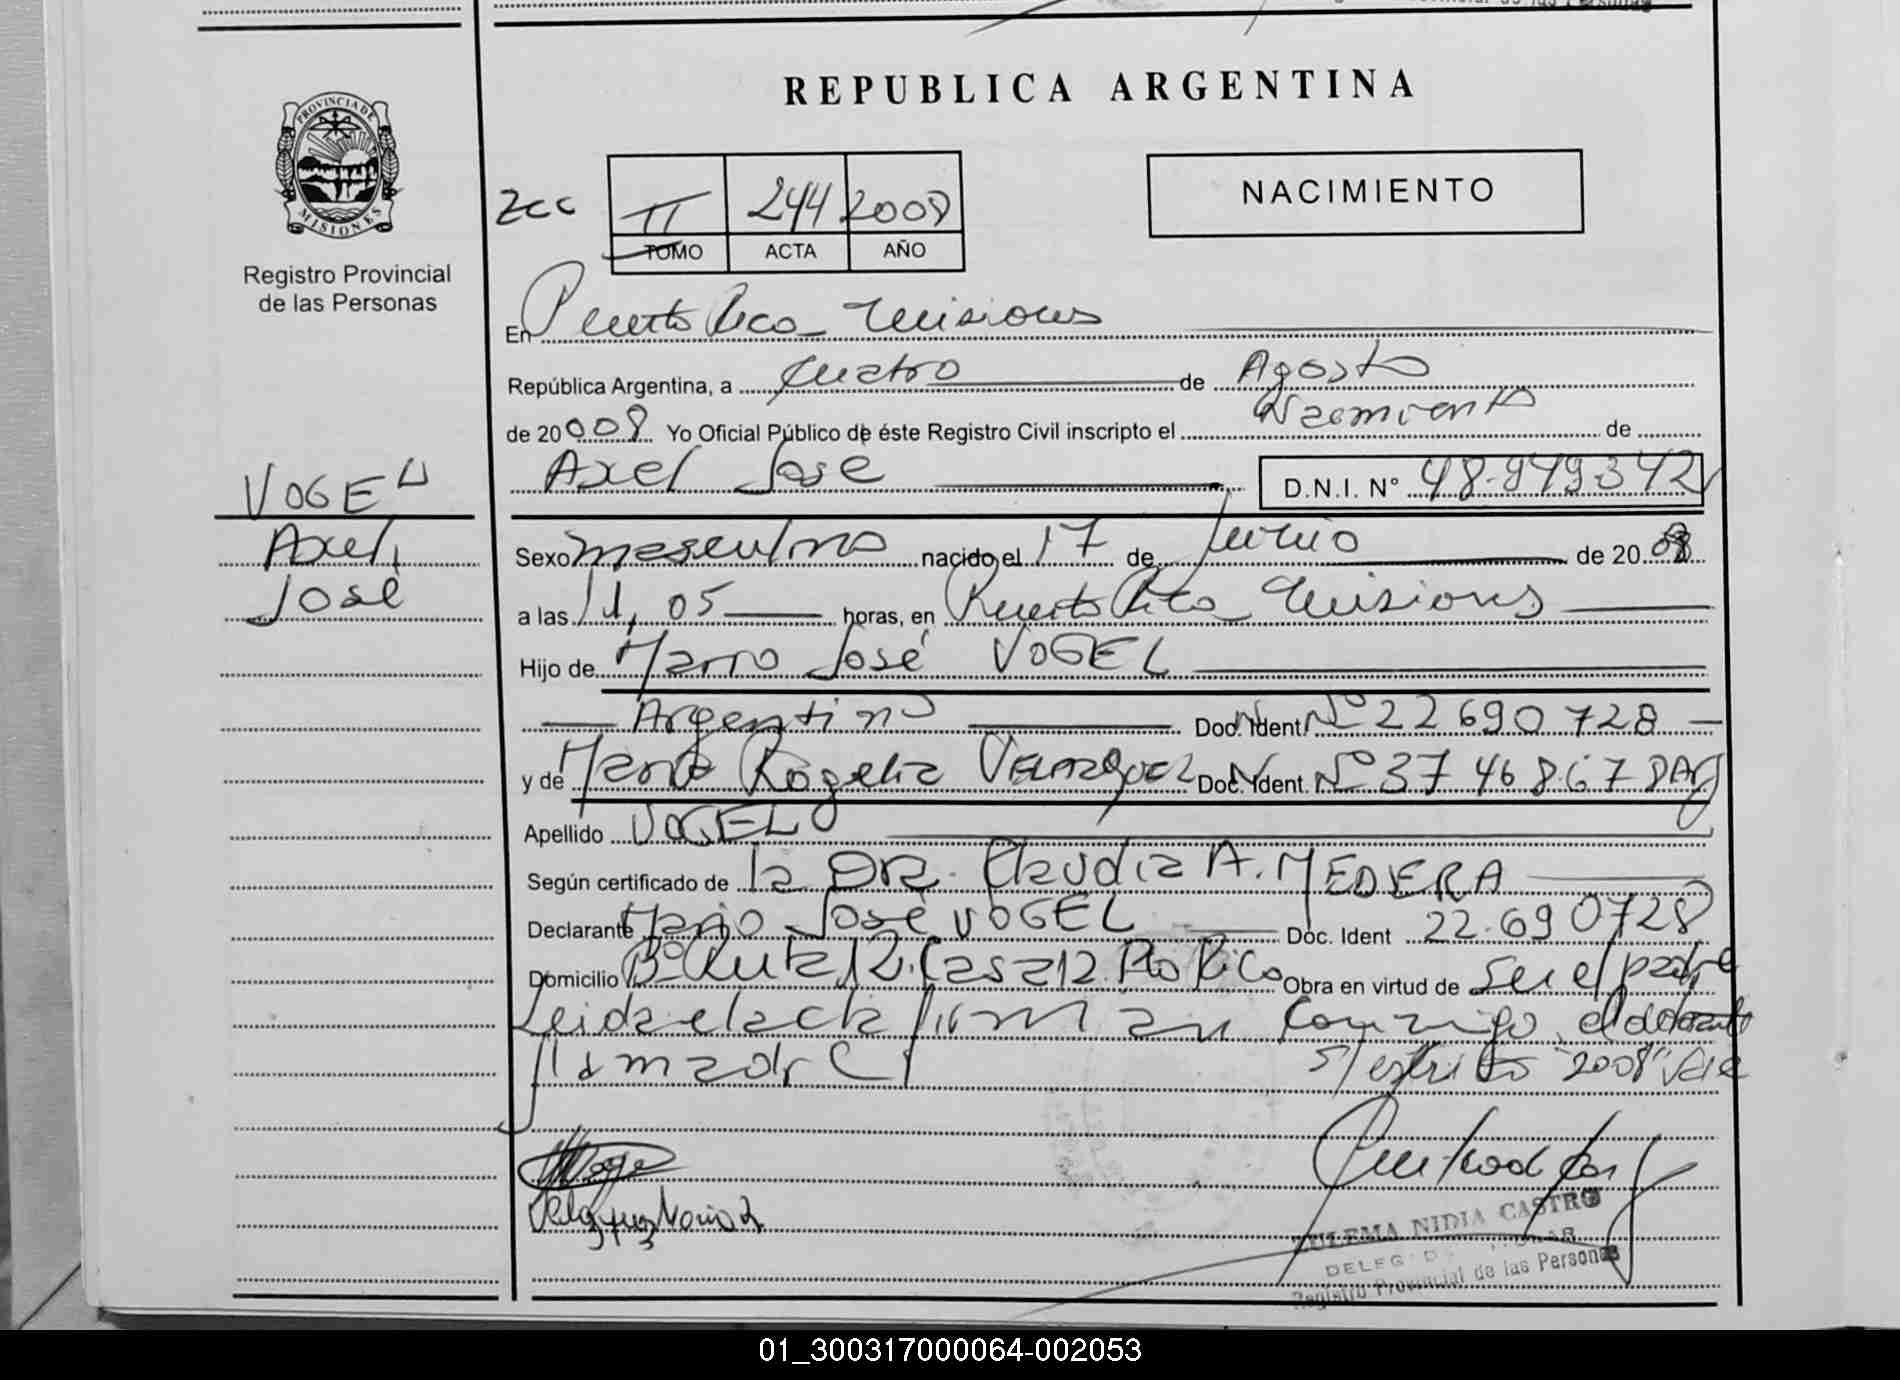 REPUBLICA ARGENTINA
PROVINCIA DE MISIONES
Registro Provincial
de las Personas
Zcc II 244 2008
TOMO ACTA AÑO
NACIMIENTO
En Puerto Rico - Misiones
República Argentina, a cuatro de Agosto
de 20008 Yo Oficial Público de éste Registro Civil inscripto el Nacimiento de
Axel José D.N.I. N° 48.949342
VOGEL
Axel
José
Sexo masculino nacido el 17 de junio de 2008
a las 11,05 horas, en Puerto Rico - Misiones
Hijo de Mario José VOGEL
Argentino Doc. Ident. N° 22690728
y de María Rogelia VELAZQUEZ Doc. Ident. N° 3746867 PAG
Apellido VOGEL
Según certificado de la DRA. Claudia A. MEDERA
Declarante Mario José VOGEL Doc. Ident 22.690728
Domicilio B° Ruta 12. Casa 12. Pto Rico Obra en virtud de ser el padre
Leida el acta firman conmigo el
llamada
s/escrito "2008" Vale
Velazquez Maria R
ZULEMA NIDIA CASTRO
Registro Provincial de las Personas
01_300317000064-002053